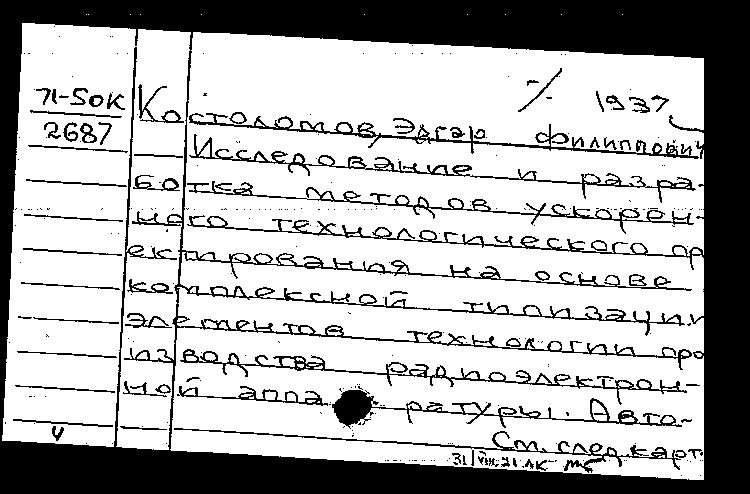 1937
71-5ок
2687
Костоломов, Эдгар Филиппович
Исследование и разра-
ботка методов ускорен-
ного технологического пр
ектирования на основе
комплексной типизации
элементов технологии про
изводства радиоэлектрон-
ной аппаратуры. Авто-
См. след. карт
V
31/VIII.71 ЛК